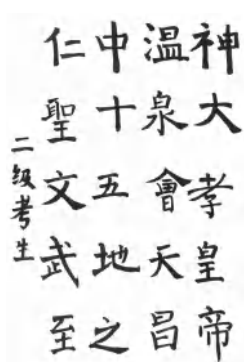 神大孝皇帝
温泉會天昌
中十五地之
仁聖文武至
二级考生